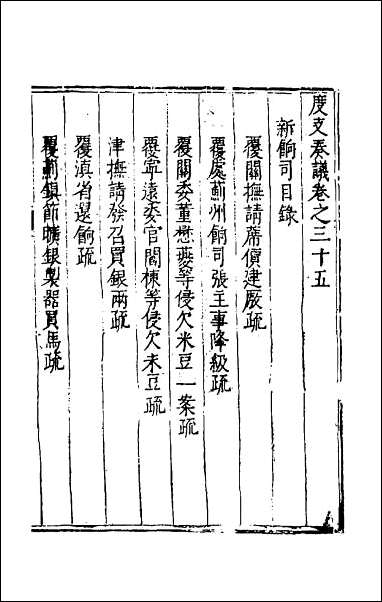 度支奏議卷之三十五
新餉司目錄
覆關撫請蓆價建厫疏
覆處薊州餉司張主事降級疏
覆關委董懋燮等侵欠米豆一案疏
覆寧遠委官閻棟等侵欠米豆疏
津撫請發召買銀兩疏
覆滇省還餉疏
覆薊鎮節曠銀製器買馬疏